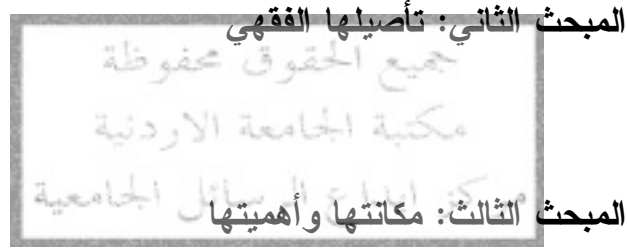 المبحث الثاني: تأصيلها الفقهي
جميع الحقوق محفوظة
مكتبة الجامعة الاردنية
مركز ايداع الرسائل الجامعية
المبحث الثالث: مكانتها وأهميتها